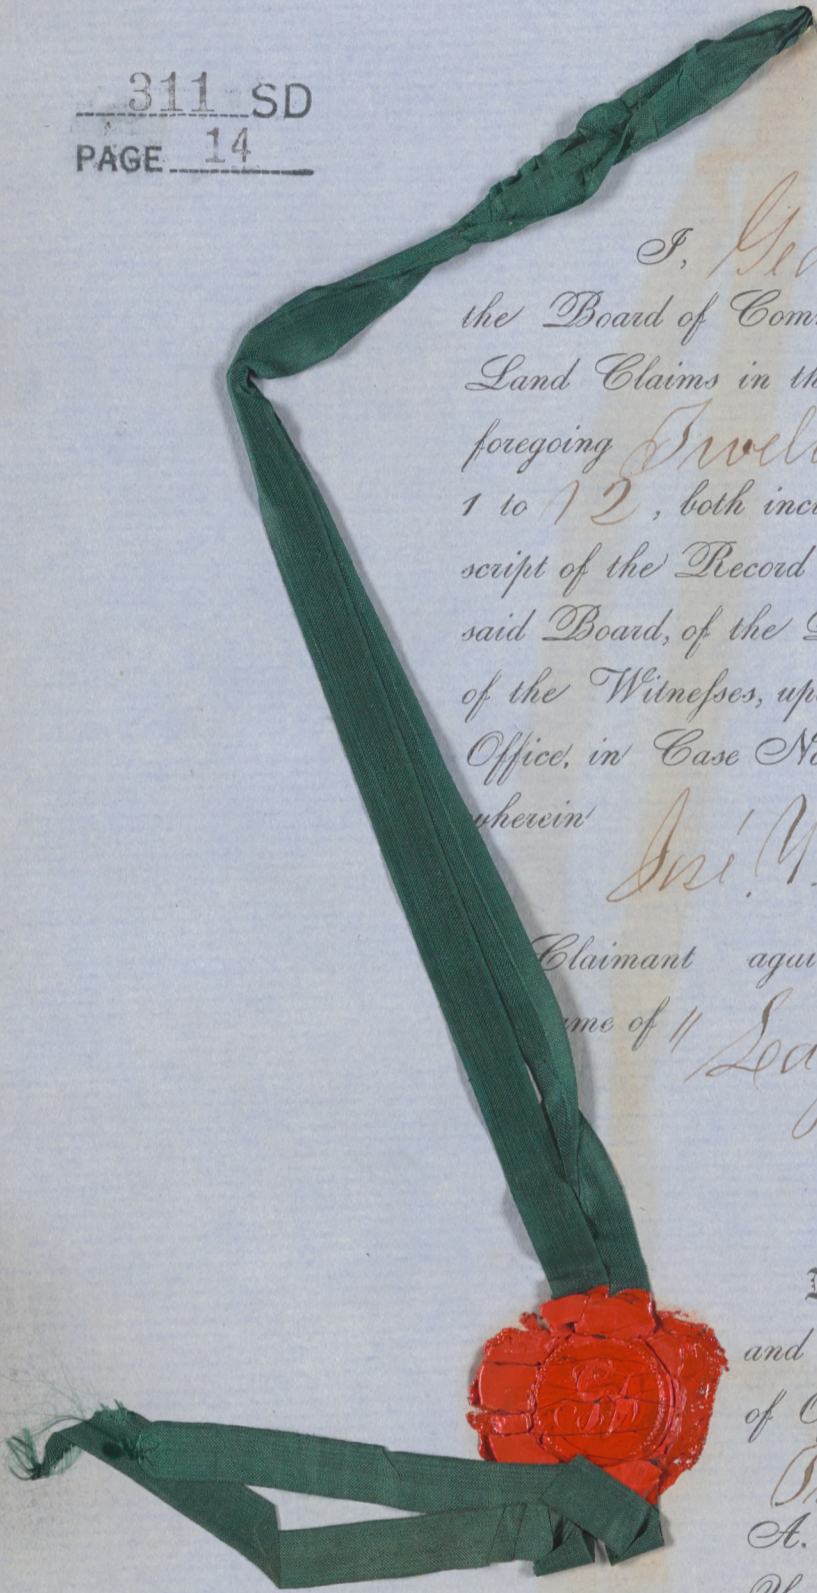 311 SD
PAGE 14
I, Geo
the Board of Com
Land Claims in th
foregoing Twel
1 to 12, both incl
script of the Record
said Board, of the
of the Witneſses, up
Office, in Case No
wherein
José Y
Claimant agai
ame of "
and
of
A.